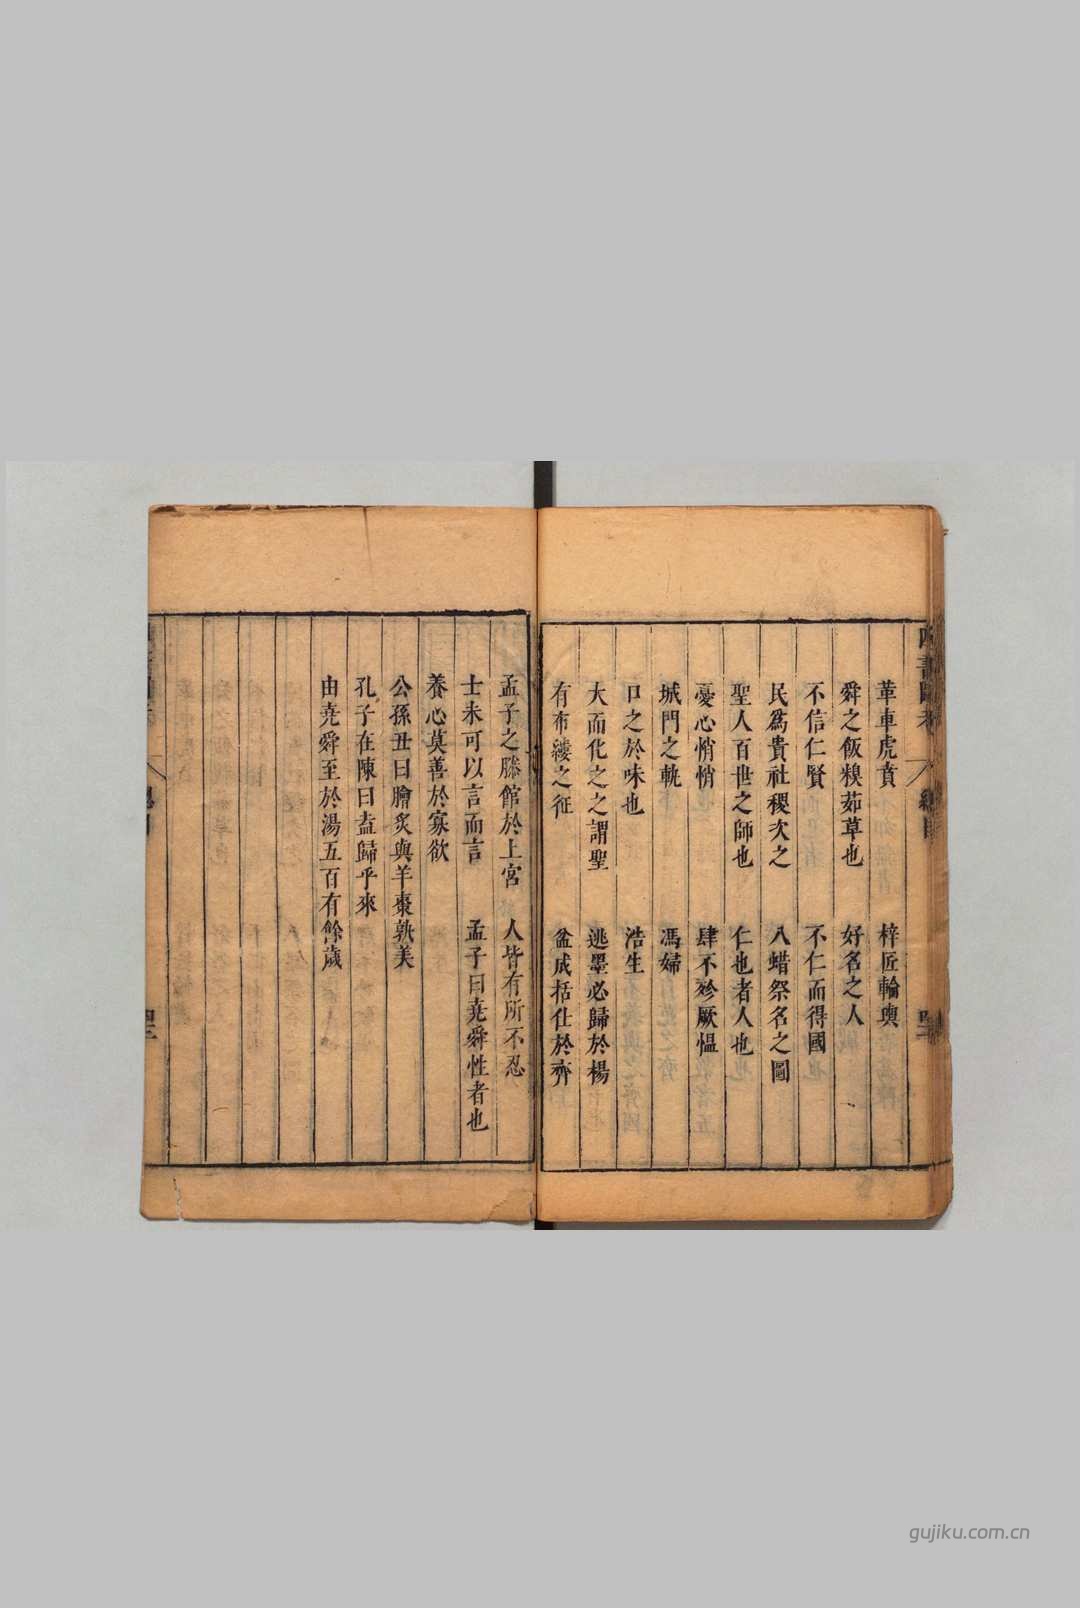 革車虎賁 梓匠輪輿
舜之飯糗茹草也 好名之人
不信仁賢 不仁而得國
民爲貴社稷次之 八蜡祭名之圖
聖人百世之師也 仁也者人也
憂心悄悄 肆不殄厥慍
城門之軌 馮婦
口之於味也 浩生
大而化之之謂聖 逃墨必歸於楊
有布縷之征 盆成括仕於齊
孟子之滕館於上宮 人皆有所不忍
士未可以言而言 孟子曰堯舜性者也
養心莫善於寡欲
公孫丑曰膾炙與羊棗孰美
孔子在陳曰盍歸乎來
由堯舜至於湯五百有餘歲
gujiku.com.cn